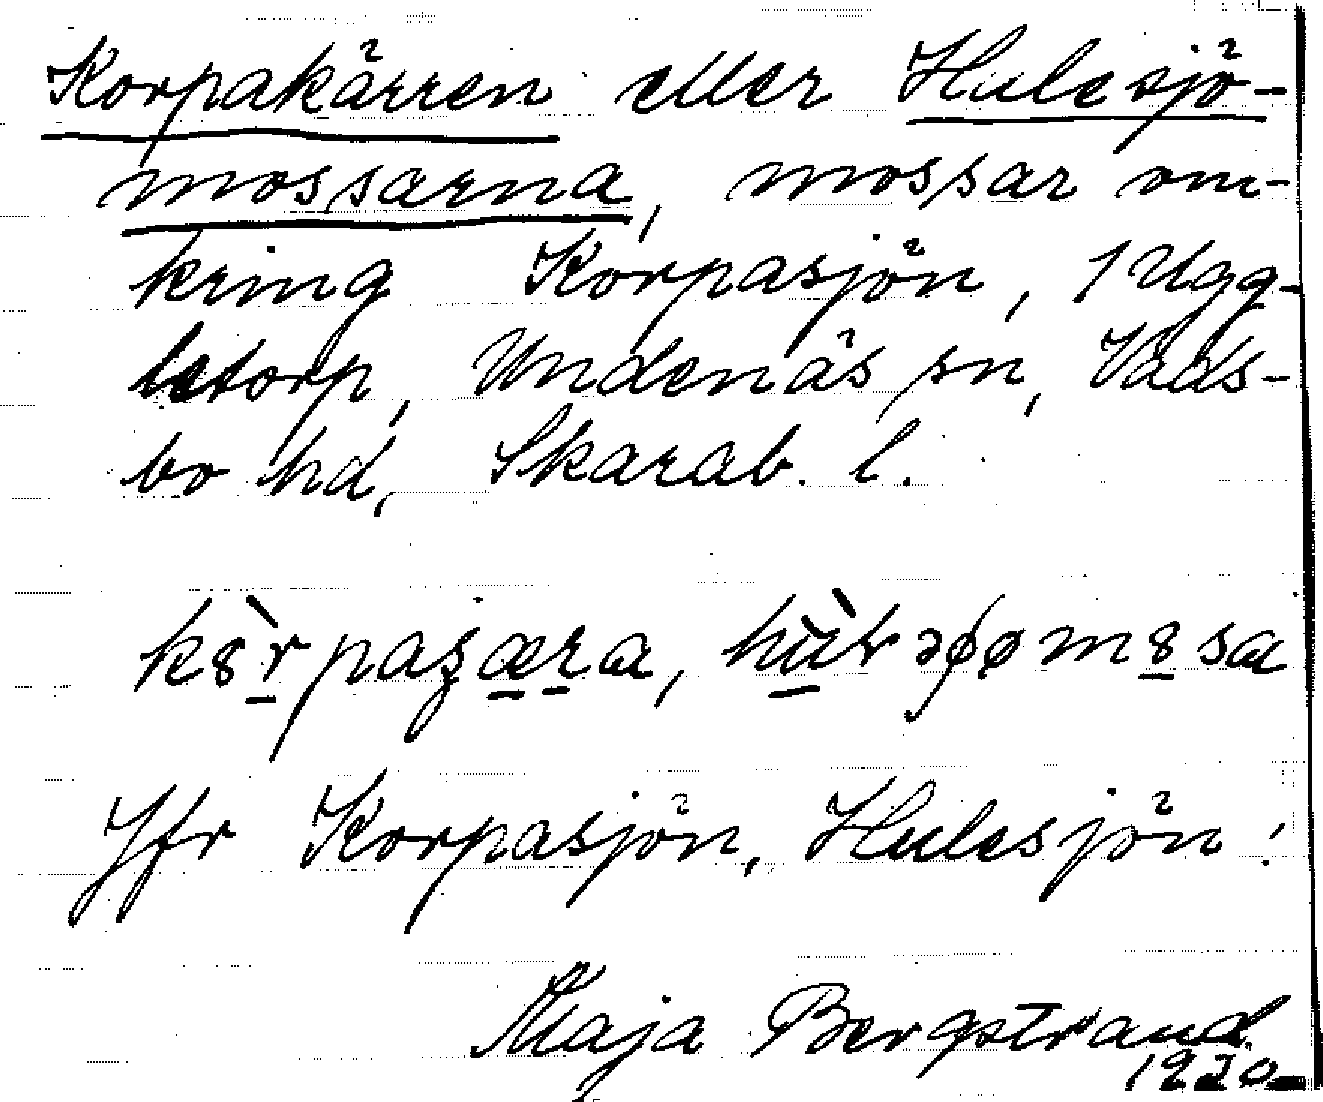 Korpakärren eller Hulesjö-
mossarna, mossar om-
kring Korpasjön, 1 Ugg-
letorp, Undenäs sn, Vads-
bo hd, Skarab. l.
Jfr Korpasjön, Hulesjön!
Maja Bergstrand
1930